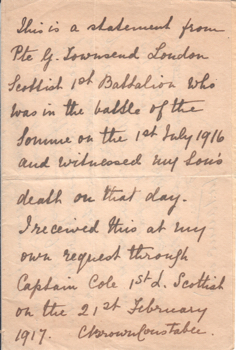 This is a statement from
Pte G. Townsend London
Scottish 1st Battalion who
was in the battle of the
Somme on the 1st July 1916
and witnessed my Son's
death on that day.
I received this at my
own request through
Captain Cole 1st L. Scottish
on the 21st February
1917. CBrownConstable.